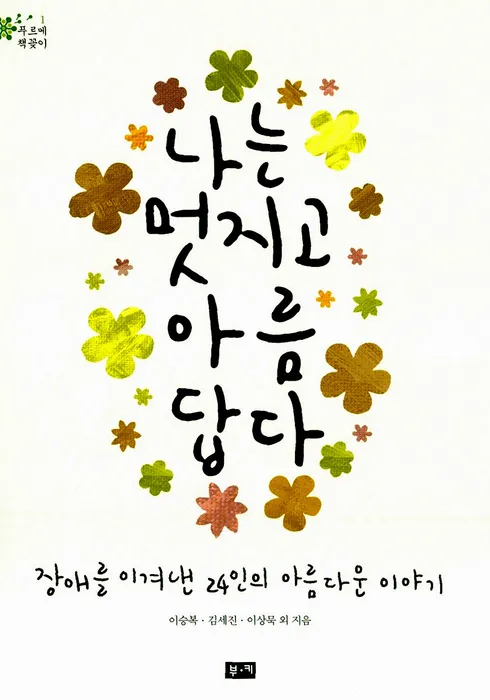 1
푸르메
책꽂이
나는
멋지고
아름
답다
장애를 이겨낸 24인의 아름다운 이야기
이승복 · 김세진 · 이상묵 외 지음
부·키